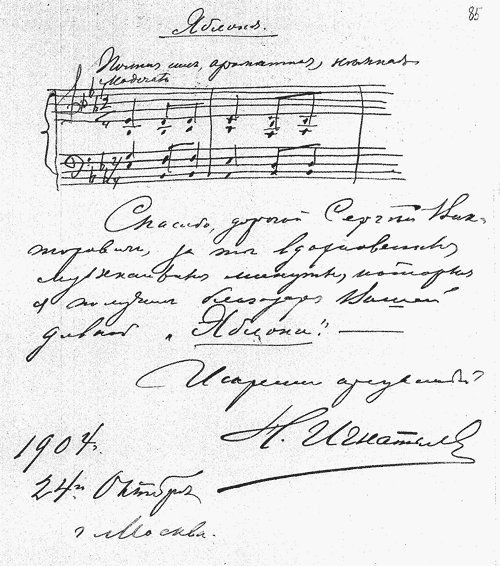 85
Яблоня.
Полная сил, ароматная, нежная
Moderato
2 4
2 4
Спасибо, дорогой Сергей Вик-
торович, за те вдохновенные
музыкальные минуты, которые
я получил благодаря Вашей
дивной „Яблони“! —
Искренно преданный
Н. Игнатьев
1904 г.
24го Октября
г. Москва.